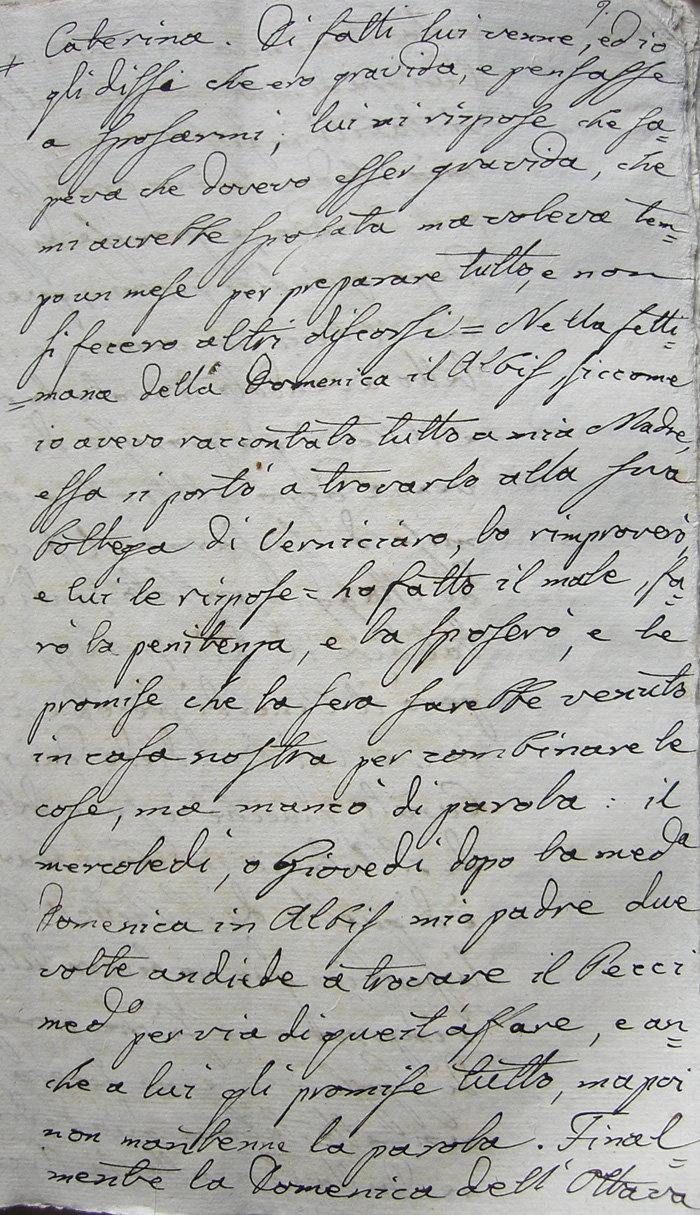 9.
Caterina. Di fatti lui venne, ed io
gli dissi che ero gravida, e pensasse
a sposarmi; lui mi rispose che sa=
peva che dovevo esser gravida, che
mi aurebbe sposata ma voleva tem=
po un mese per preparare tutto, e non
si fecero altri discorsi = Nella setti=
=mana della Domenica il Albis, siccome
io avevo raccontato tutto a mia Madre,
essa si portò a trovarlo alla sua
bottega di Verniciaro, lo rimproverò,
e lui le rispose = ho fatto il male, fa=
rò la penitenza, e la sposerò, e le
promise che la sera sarebbe venuto
in casa nostra per combinare le
cose, ma mancò di parola: il
mercoledì, o Giovedì dopo la meda
Domenica in Albis mio padre due
volte andiede a trovare il Pecci
medo per via di quest'affare, e an=
che a lui gli promise tutto, ma poi
non mantenne la parola. Final=
mente la Domenica dell'Ottava